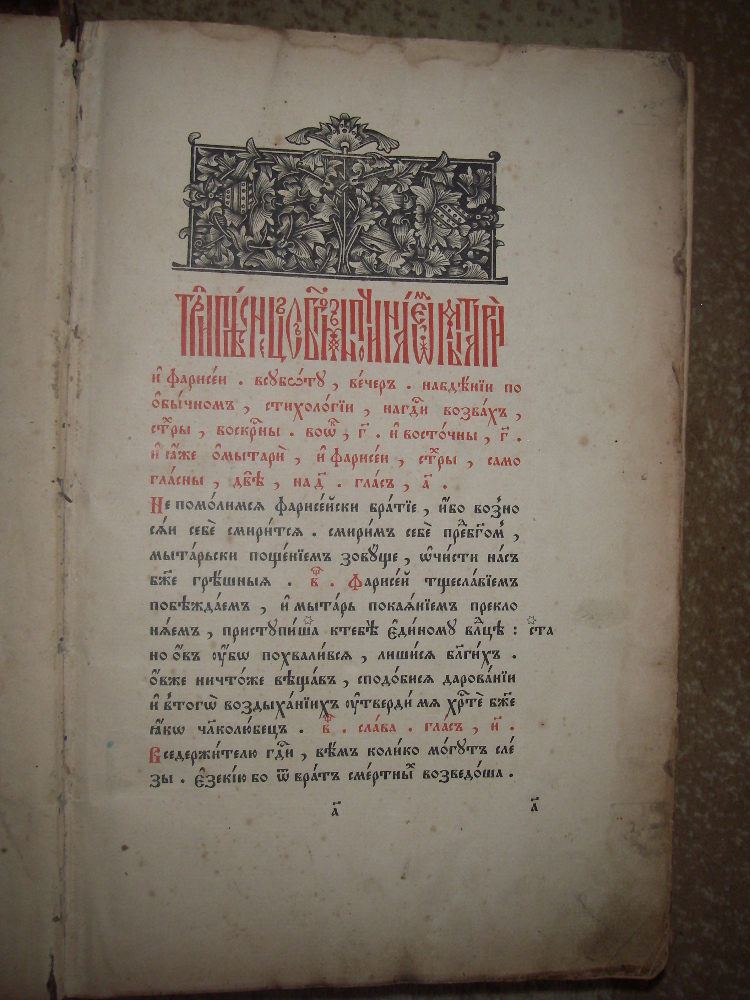 и҆ фарисе́и . всꙋбѡ́тꙋ , ве́черъ . набдѣ́нїи по
ѻ҆бы́чномъ , стихоло́гїи , нагдⷭ҇и возва́хъ ,
стⷯры , воскрⷭ҇ны . воѿ , г҃ . и҆ восто́чны , г҃ .
и҆ са́же ѻ҆мытарѝ , и҆ фарисе́и , стⷯры , само
гла́сны , двѣ̀ , на д҃ . гла́съ , а҃ .
Не помо́лимсѧ фарисе́йски бра́тїе , и҆́бо возно
сѧ́и себѐ смири́тсѧ . смири́мъ себѐ пре́дбг҃омъ ,
мыта́рьски поще́нїемъ зовꙋ́ще , ѡ҆чи́сти на́съ
бж҃е грѣ́шныѧ . в҃ . Фарисе́й тщесла́вїемъ
побѣжда́емъ , и҆ мыта́рь покаѧ́нїемъ прекло
нѧ́емъ , пристꙋпи́ша ктебѣ̀ є҆ди́номꙋ влⷣцѣ : ста
но ѻ҆́въ ᲂу҆́бѡ похвали́всѧ , лиши́сѧ блги́хъ .
ѻ҆́вже ничто́же вѣща́въ , сподо́бисѧ дарова́нїи
и҆ в҆тогѡ̀ воздыха́нїихъ ᲂу҆тверди́ мѧ хрⷭ҇тѐ бж҃е
ꙗ҆́кѡ чл҃колю́бецъ . в҃ . сла́ва . гла́съ , и҃ .
Вседержи́телю гдⷭ҇и , вѣ́мъ коли́ко мо́гꙋтъ сле́
зы . є҆зекі́ю бо ѿ вра́тъ сме́ртныⷯ возведо́ша .
а҃
а҃